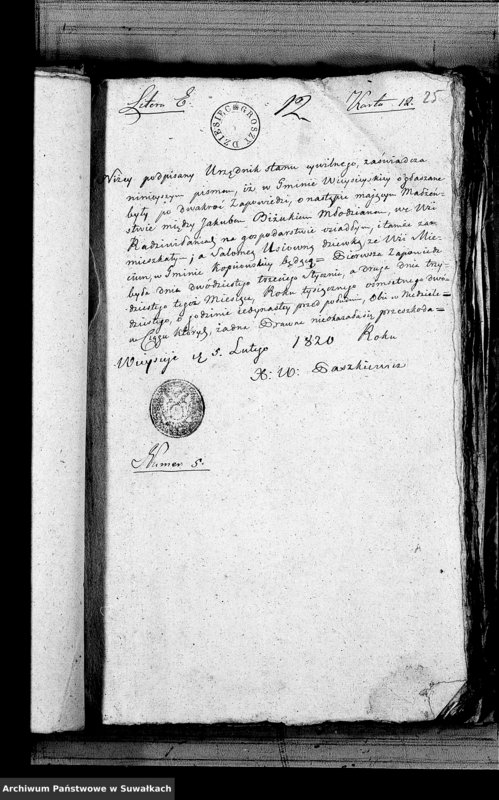 Litera E. 12 Karta 12. 25
DZIESIĘĆ GROSZY
Niżey podpisany Urzędnik stanu cywilnego, zaświadcza
ninieyszym pismem, iż w Gminie Wieysieyskiey ogłaszane
były po dwakroć Zapowiedzi, o nastąpić maiącym Małżeń-
stwie między Jakubem Biżukiem Młodzianem, we Wsi
na gospodarstwie osiadłym, i tamże za-
mieszkałym; a Salomeą dziewką ze Wsi
w Gminie Kopciowskiey będącą = Pierwsza Zapowiedź
była dnia dwudziestego trzeciego Stycznia, a druga dnia trzy-
dziestego tegoż Miesiąca, Roku tysiącznego osmsetnego dwu-
dziestego, o godzinie iedynastey przed południem, Obie w Niedziele =
w Ciągu których, żadna Prawna nieokazała się przeszkoda =
Wieysieje d. 5. Lutego 1820 Roku
X. W. Daszkiewicz
Numer 5.
Archiwum Państwowe w Suwałkach